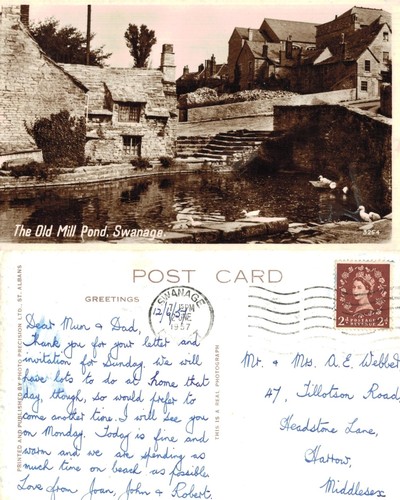 The Old Mill Pond, Swanage.
3264
POST CARD
GREETINGS
SWANAGE
1957
12/6/57
PRINTED AND PUBLISHED BY PHOTO PRECISION LTD., ST. ALBANS
THIS IS A REAL PHOTOGRAPH
2d POSTAGE REVENUE 2d
Dear Mum & Dad,
Thank you for your letter and
invitation for Sunday. We will
have lots to do at home that
day, though, so would prefer to
come another time. I will see you
on Monday. Today is fine and
warm and we are spending as
much time on beach as possible.
Love from Joan, John & Robert.
Mr. & Mrs. A. E. Webber
47, Tillotson Road,
Headstone Lane,
Harrow,
Middlesex